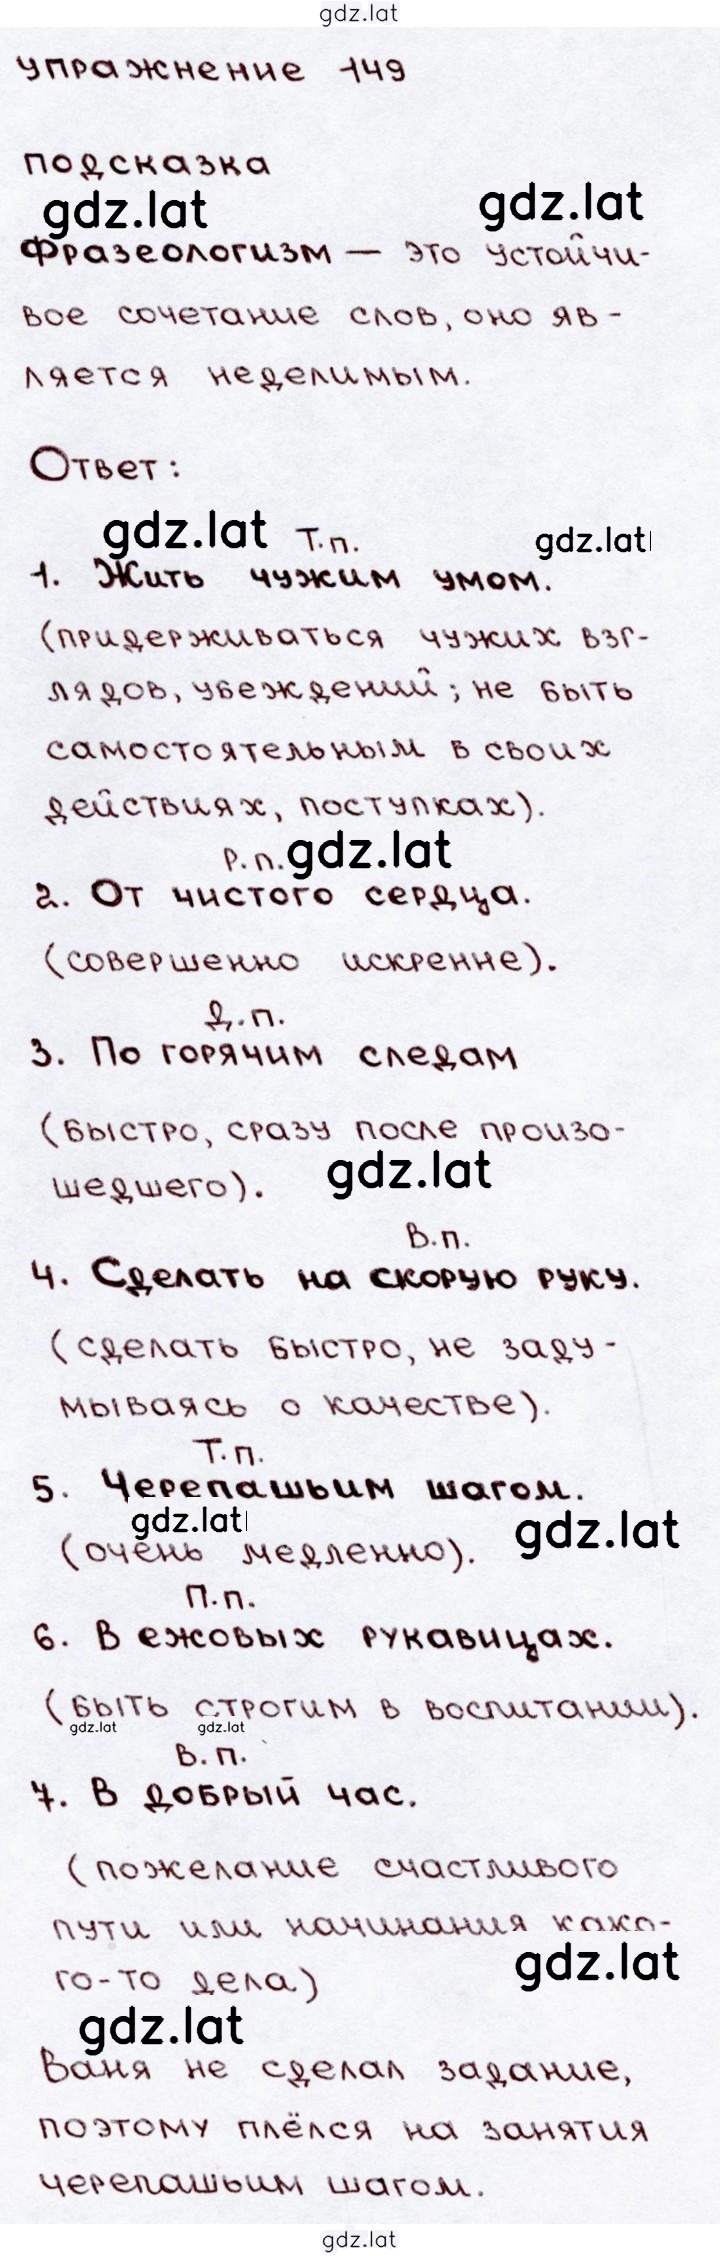 gdz.lat
упражнение 149
подсказка
gdz.lat gdz.lat
Фразеологизм — это устойчи-
вое сочетание слов, оно яв-
ляется неделимым.
Ответ:
gdz.lat Т.п. gdz.lat
1. Жить чужим умом.
(придерживаться чужих взг-
лядов, убеждений; не быть
самостоятельным в своих
действиях, поступках).
Р.п. gdz.lat
2. От чистого сердца.
(совершенно искренне).
Д.п.
3. По горячим следам
(быстро, сразу после произо-
шедшего). gdz.lat
В.п.
4. Сделать на скорую руку.
(сделать быстро, не заду-
мываясь о качестве).
Т.п.
5. Черепашьим шагом.
gdz.lat gdz.lat
(очень медленно).
П.п.
6. В ежовых рукавицах.
(быть строгим в воспитании).
gdz.lat gdz.lat
В.п.
7. В добрый час.
(пожелание счастливого
пути или начинания како-
го-то дела) gdz.lat
gdz.lat
Ваня не сделал задание,
поэтому плёлся на занятия
черепашьим шагом.
gdz.lat